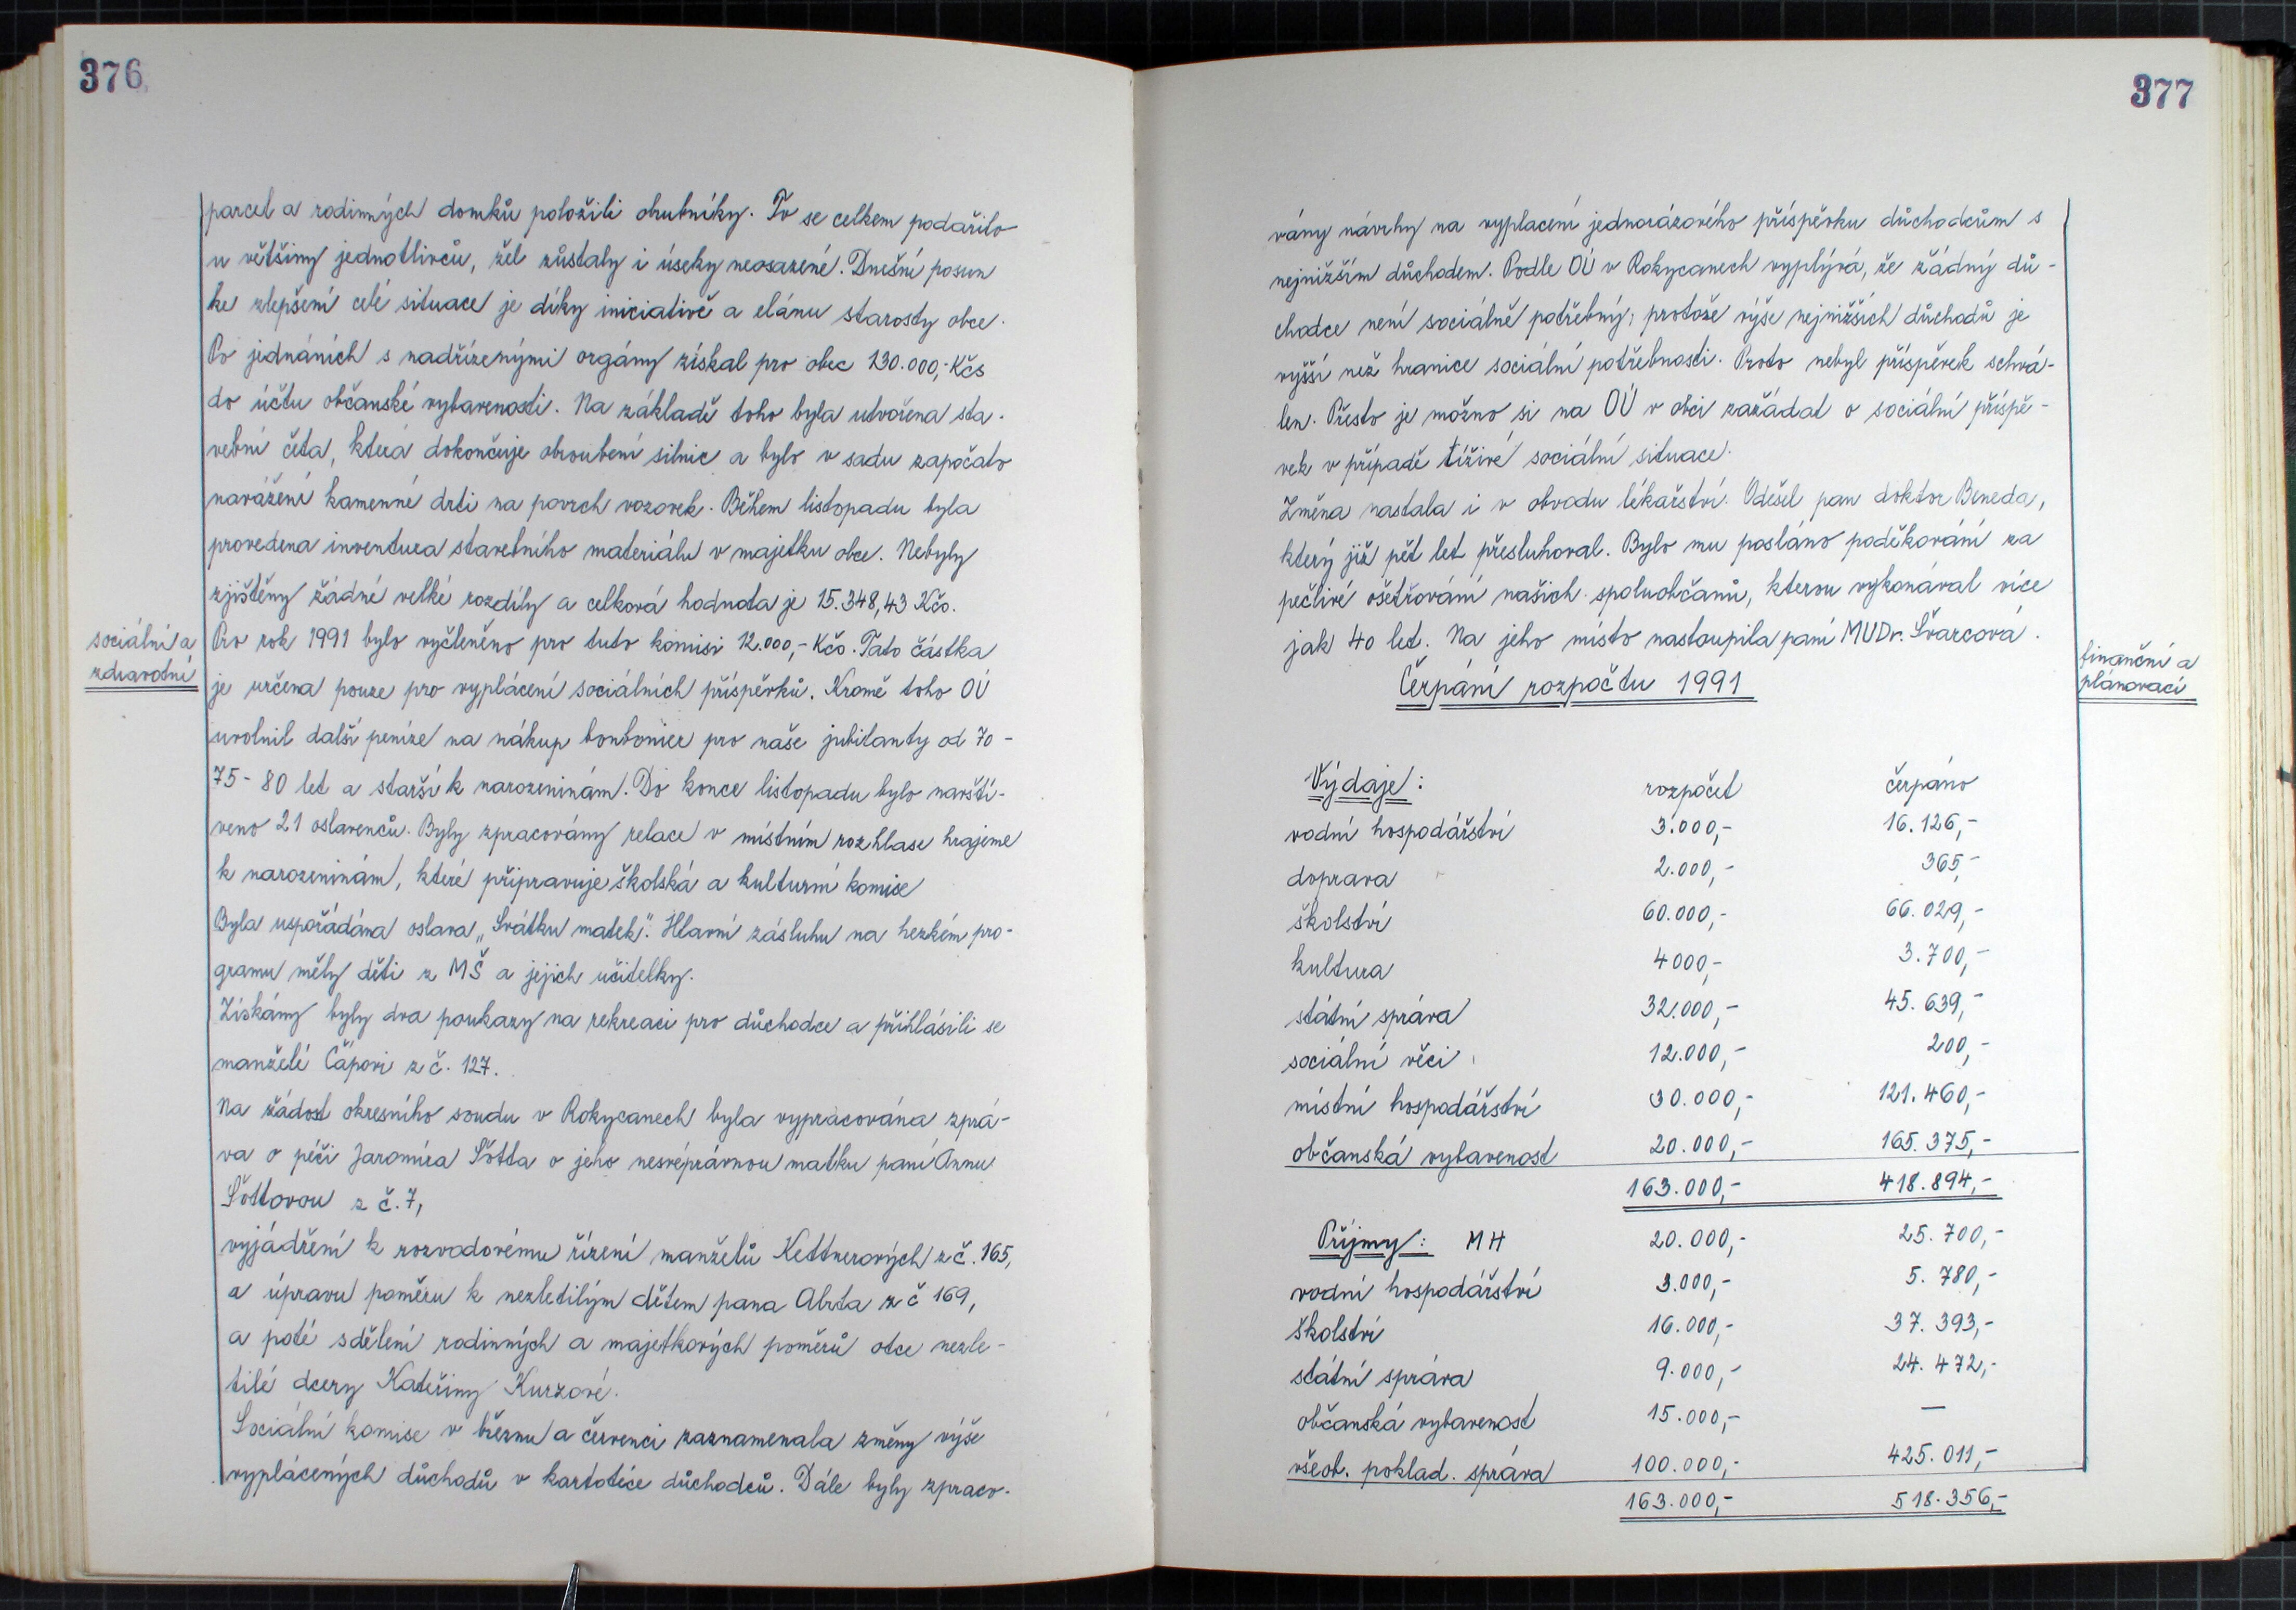 376
parcel a rodinných domků položili obrubníky. To se celkem podařilo
u většiny jednotlivců, žel zůstaly i úseky neosazené. Dnešní posun
ke zlepšení celé situace je díky iniciativě a elánu starosty obce.
Po jednáních s nadřízenými orgány získal pro obec 130.000,- Kčs
do účtu občanské vybavenosti. Na základě toho byla utvořena sta-
vební četa, která dokončuje obroubení silnic a bylo v sadu započato
navážení kamenné drti na povrch vozovek. Během listopadu byla
provedena inventura stavebního materiálu v majetku obce. Nebyly
zjištěny žádné velké rozdíly a celková hodnota je 15.348,43 Kčs.
sociální a
zdravotní
Pro rok 1991 bylo vyčleněno pro tuto komisi 12.000,- Kčs. Tato částka
je určena pouze pro vyplácení sociálních příspěvků. Kromě toho OÚ
uvolnil další peníze na nákup bonbonier pro naše jubilanty od 70-
75-80 let a starší k narozeninám. Do konce listopadu bylo navští-
veno 21 oslavenců. Byly zpracovány relace v místním rozhlase hrajeme
k narozeninám, které připravuje školská a kulturní komise
Byla uspořádána oslava „Svátku matek". Hlavní zásluhu na hezkém pro-
gramu měly děti z MŠ a jejich učitelky.
Získány byly dva poukazy na rekreaci pro důchodce a přihlásili se
manželé Čápovi z č. 127.
Na žádost okresního soudu v Rokycanech byla vypracována zprá-
va o péči Jaromíra Šotta o jeho nesvéprávnou matku paní Annu
Šottovou z č. 7,
vyjádření k rozvodovému řízení manželů Kettnerových z č. 165,
a úpravu poměru k nezletilým dětem pana Abrta z č 169,
a poté sdělení rodinných a majetkových poměrů otce nezle-
tilé dcery Kateřiny Kurzové.
Sociální komise v březnu a červenci zaznamenala změny výše
vyplácených důchodů v kartotéce důchodců. Dále byly zpraco-
377
vány návrhy na vyplacení jednorázového příspěvku důchodcům s
nejnižším důchodem. Podle OÚ v Rokycanech vyplývá, že žádný dů-
chodce není sociálně potřebný, protože výše nejnižších důchodů je
vyšší než hranice sociální potřebnosti. Proto nebyl příspěvek schvá-
len. Přesto je možno si na OÚ v obci zažádat o sociální příspě-
vek v případě tíživé sociální situace.
Změna nastala i v obvodu lékařství. Odešel pan doktor Beneda,
který již pět let přesluhoval. Bylo mu posláno poděkování za
pečlivé ošetřování našich spoluobčanů, kterou vykonával více
jak 40 let. Na jeho místo nastoupila paní MUDr. Švarcová.
finanční a
plánovací
Čerpání rozpočtu 1991
Výdaje: rozpočet čerpáno
vodní hospodářství 3.000,- 16.126,-
doprava 2.000,- 365,-
školství 60.000,- 66.029,-
kultura 4000,- 3.700,-
státní správa 32.000,- 45.639,-
sociální věci 12.000,- 200,-
místní hospodářství 30.000,- 121.460,-
občanská vybavenost 20.000,- 165.375,-
163.000,- 418.894,-
Příjmy: MH 20.000,- 25.700,-
vodní hospodářství 3.000,- 5.780,-
školství 16.000,- 37.393,-
státní správa 9.000,- 24.472,-
občanská vybavenost 15.000,- —
všeob. poklad. správa 100.000,- 425.011,-
163.000,- 518.356,-